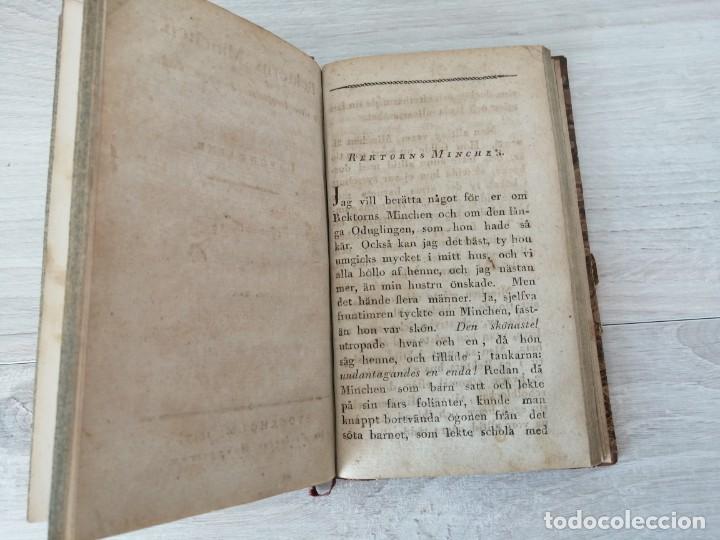 REKTORNS MINCHEN.
Jag vill berätta något för er om
Rektorns Minchen och om den lån-
ga Oduglingen, som hon hade så
kär. Också kan jag det bäst, ty hon
umgicks mycket i mitt hus, och vi
alla höllo af henne, och jag nästan
mer, än min hustru önskade. Men
det hände flera männer. Ja, sjelfva
fruntimren tyckte om Minchen, fast-
än hon var skön. Den skönaste!
utropade hvar och en, då hon
såg henne, och tillade i tankarna:
undantagandes en enda! Redan, då
Minchen som barn satt och lekte
på sin fars folianter, kunde man
knappt bortvända ögonen från det
söta barnet, som lekte schola med
todocoleccion
todocoleccion.net